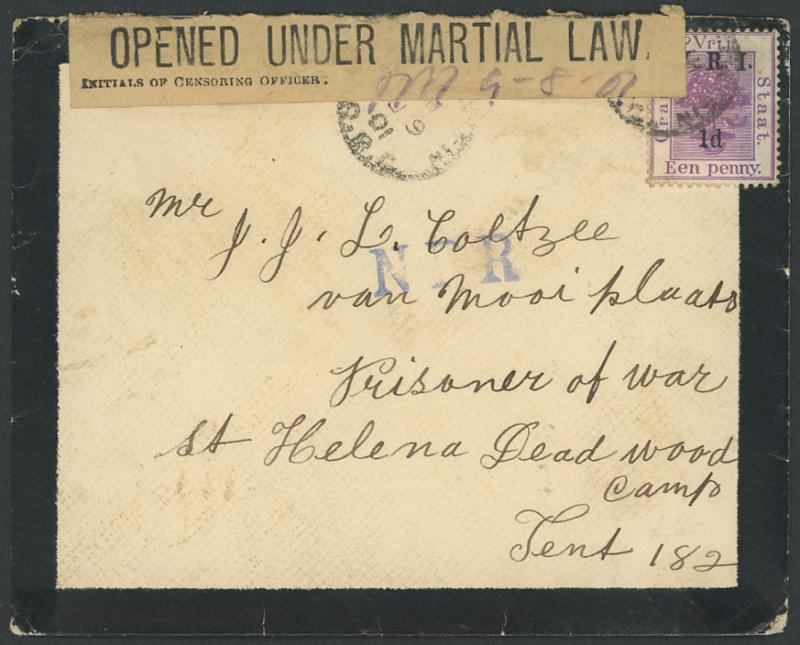 OPENED UNDER MARTIAL LAW.
INITIALS OF CENSORING OFFICER.
9-8-01
Vrij
Staat.
R. I.
1d
Een penny.
Mr
J. J. L. Coetzee
van Mooi plaats
Prisoner of war
St Helena Dead wood
Camp
Tent 182